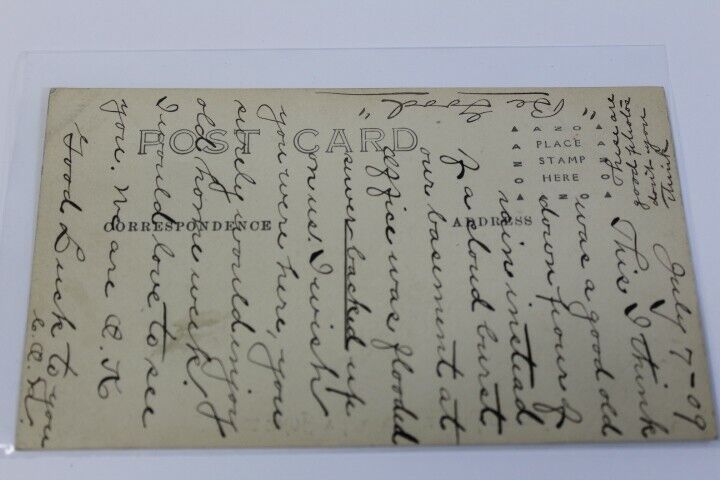 POST CARD
CORRESPONDENCE
ADDRESS
PLACE
STAMP
HERE
July 7-09
This I think
was a good old
down pour of
rain instead
of a cloud burst
our basement at
office was flooded
sewer backed up
on us. I wish
you were here, you
surely would enjoy
old home week.
I would love to see
you. We are O.K
Good Luck to you
These are
good photos
don't you
think
"Be Good"